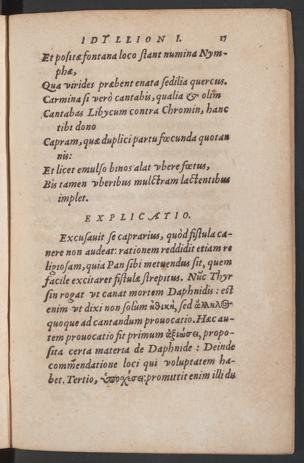 IDYLLION I. 17
Et positæ fontana loco stant numina Nym-
phæ,
Qua virides præbent enata sedilia quercus.
Carmina si verò cantabis, qualia & olim
Cantabas Libycum contra Chromin, hanc
tibi dono
Capram, quæ duplici partu fœcunda quotan
nis:
Et licet emulso binos alat vbere fœtus,
Bis tamen vberibus mulctram lactentibus
implet.
EXPLICATIO.
Excusauit se caprarius, quòd fistula ca-
nere non audeat: rationem reddidit etiam re
ligiosam, quia Pan sibi metuendus sit, quem
facile excitaret fistulæ strepitus. Nũc Thyr
sin rogat vt canat mortem Daphnidis: est
enim vt dixi non solùm ἠθικὴ, sed
quoque ad cantandum prouocatio. Hæc au-
tem prouocatio fit primum ἀξιώσει, propo-
sita certa materia de Daphnide: Deinde
commẽdatione loci qui voluptatem ha-
bet. Tertio, ὑποχέσει: promittit enim illi du